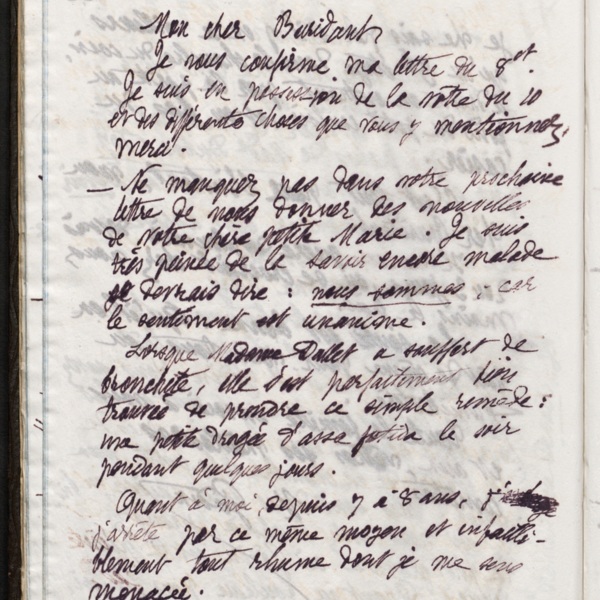 Mon cher Buridant
Je vous confirme ma lettre du 8 ct.
Je suis en possession de la votre du 10
et des différents choses que vous y mentionnez,
merci.
— Ne manquez pas dans votre prochaine
lettre de nous donner des nouvelles
de votre chère petite Marie. Je suis
très peinée de la savoir encore malade
je devrais dire : nous sommes ; car
le sentiment est unanime.
Lorsque Madame Dallet a souffert de
bronchite, elle s'est parfaitement bien
trouvée de prendre ce simple remède :
une petite dragée d'assa fœtida le soir
pendant quelques jours.
Quant à moi, depuis 7 à 8 ans,
j'arrête par ce même moyen et infailli-
blement tout rhume dont je me sens
menacée.